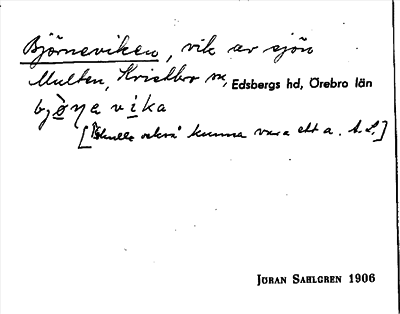 Björneviken, vik av sjön
Multen, Knistbro sn, Edsbergs hd, Örebro län
bjö̀ŋevika
[Skulle också kunna vara ett a. A.L.]
JÖRAN SAHLGREN 1906